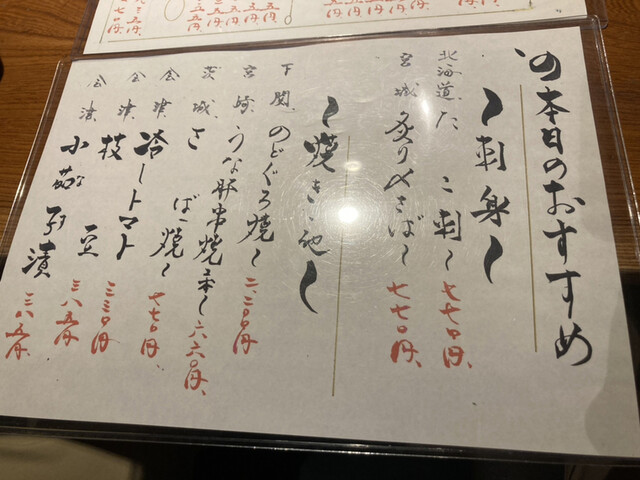 本日のおすすめ
〜刺身〜
北海道、たこ刺し 七七〇円、
宮城、炙り〆さば 七七〇円、
〜焼き・他〜
下関、のどぐろ焼 二、二〇〇円
宮崎、うなぎ肝串焼 一本 六六〇円、
茨城、さば焼 七七〇円、
会津、冷しトマト 三三〇円
会津、枝豆 三八五円
会津、小茄子漬 三八五円、